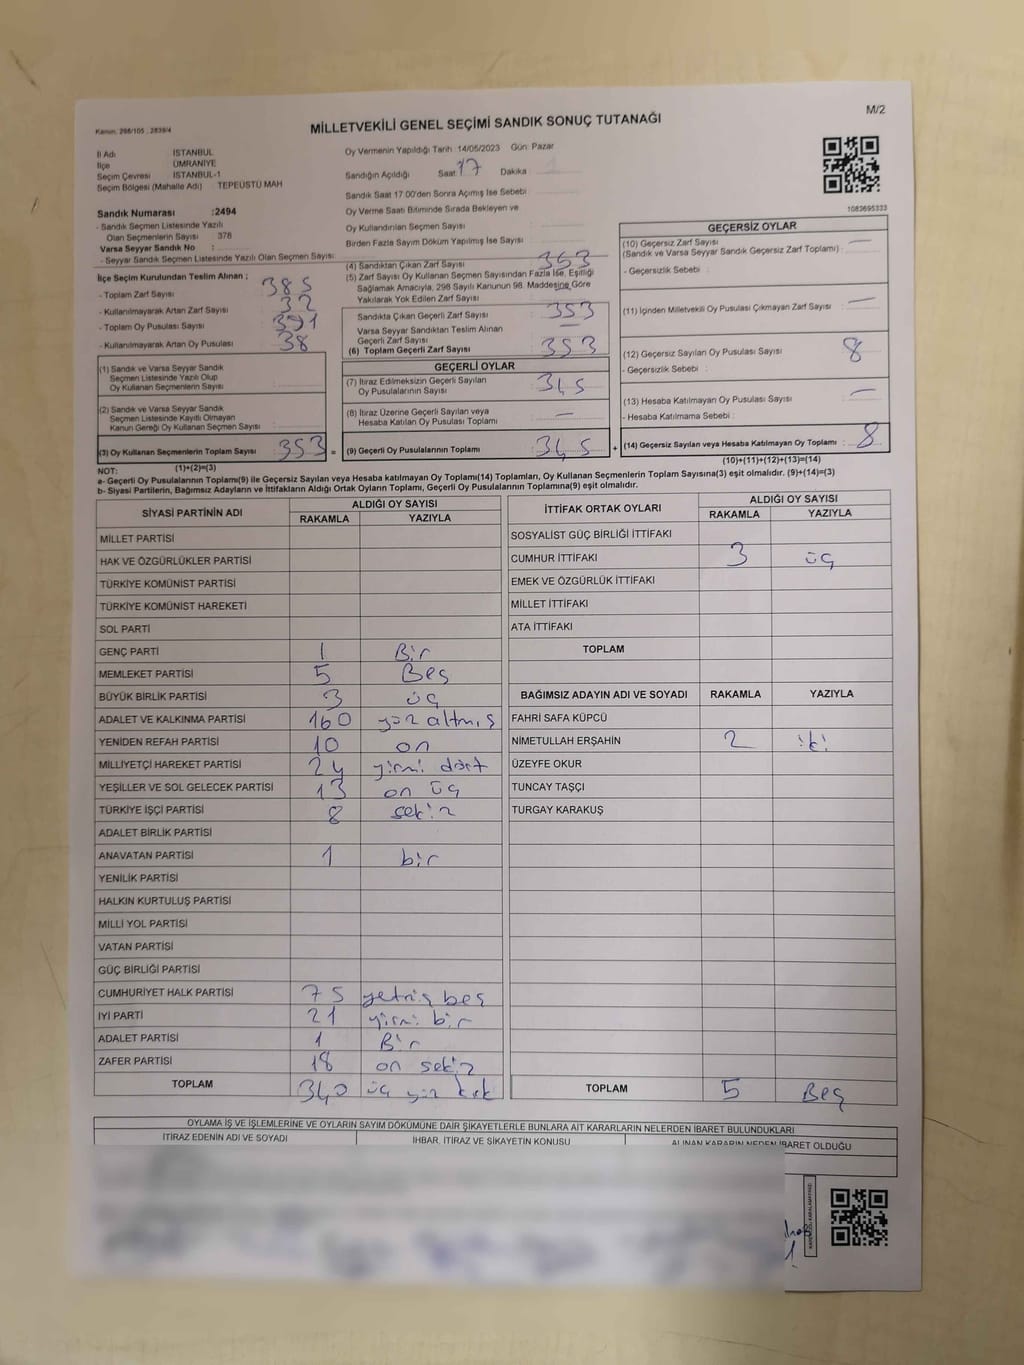 Kanun: 298/105 ; 2839/4
M/2
MİLLETVEKİLİ GENEL SEÇİMİ SANDIK SONUÇ TUTANAĞI
İl Adı İSTANBUL
İlçe ÜMRANİYE
Seçim Çevresi İSTANBUL-1
Seçim Bölgesi (Mahalle Adı) : TEPEÜSTÜ MAH
Sandık Numarası :2494
- Sandık Seçmen Listesinde Yazılı
Olan Seçmenlerin Sayısı : 378
Varsa Seyyar Sandık No :
- Seyyar Sandık Seçmen Listesinde Yazılı Olan Seçmen Sayısı :
Oy Vermenin Yapıldığı Tarih 14/05/2023 Gün: Pazar
Sandığın Açıldığı Saat 17 Dakika
Sandık Saat 17.00'den Sonra Açımış İse Sebebi
Oy Verme Saati Bitiminde Sırada Bekleyen ve
Oy Kullandırılan Seçmen Sayısı
Birden Fazla Sayım Döküm Yapılmış İse Sayısı
1083695333
İlçe Seçim Kurulundan Teslim Alınan ;
- Toplam Zarf Sayısı 385
- Kullanılmayarak Artan Zarf Sayısı 32
- Toplam Oy Pusulası Sayısı 391
- Kullanılmayarak Artan Oy Pusulası 38
(1) Sandık ve Varsa Seyyar Sandık
Seçmen Listesinde Yazılı Olup
Oy Kullanan Seçmenlerin Sayısı :
(2) Sandık ve Varsa Seyyar Sandık
Seçmen Listesinde Kayıtlı Olmayan
Kanun Gereği Oy Kullanan Seçmen Sayısı :
(3) Oy Kullanan Seçmenlerin Toplam Sayısı 353 =
(1)+(2)=(3)
(4) Sandıktan Çıkan Zarf Sayısı 353
(5) Zarf Sayısı Oy Kullanan Seçmen Sayısından Fazla İse, Eşitliği
Sağlamak Amacıyla, 298 Sayılı Kanunun 98. Maddesine Göre
Yakılarak Yok Edilen Zarf Sayısı —
Sandıkta Çıkan Geçerli Zarf Sayısı 353
Varsa Seyyar Sandıktan Teslim Alınan
Geçerli Zarf Sayısı —
(6) Toplam Geçerli Zarf Sayısı 353
GEÇERLİ OYLAR
(7) İtiraz Edilmeksizin Geçerli Sayılan
Oy Pusulalarının Sayısı 345
(8) İtiraz Üzerine Geçerli Sayılan veya
Hesaba Katılan Oy Pusulası Toplamı —
(9) Geçerli Oy Pusulalarının Toplamı 345 +
GEÇERSİZ OYLAR
(10) Geçersiz Zarf Sayısı —
(Sandık ve Varsa Seyyar Sandık Geçersiz Zarf Toplamı) :
- Geçersizlik Sebebi :
(11) İçinden Milletvekili Oy Pusulası Çıkmayan Zarf Sayısı —
(12) Geçersiz Sayılan Oy Pusulası Sayısı 8
- Geçersizlik Sebebi :
(13) Hesaba Katılmayan Oy Pusulası Sayısı —
- Hesaba Katılmama Sebebi :
(14) Geçersiz Sayılan veya Hesaba Katılmayan Oy Toplamı : 8
(10)+(11)+(12)+(13)=(14)
NOT:
a- Geçerli Oy Pusulalarının Toplamı(9) ile Geçersiz Sayılan veya Hesaba katılmayan Oy Toplamı(14) Toplamları, Oy Kullanan Seçmenlerin Toplam Sayısına(3) eşit olmalıdır. (9)+(14)=(3)
b- Siyasi Partilerin, Bağımsız Adayların ve İttifakların Aldığı Ortak Oyların Toplamı, Geçerli Oy Pusulalarının Toplamına(9) eşit olmalıdır.
SİYASİ PARTİNİN ADI ALDIĞI OY SAYISI
RAKAMLA YAZIYLA
MİLLET PARTİSİ
HAK VE ÖZGÜRLÜKLER PARTİSİ
TÜRKİYE KOMÜNİST PARTİSİ
TÜRKİYE KOMÜNİST HAREKETİ
SOL PARTİ
GENÇ PARTİ 1 Bir
MEMLEKET PARTİSİ 5 Beş
BÜYÜK BİRLİK PARTİSİ 3 üç
ADALET VE KALKINMA PARTİSİ 160 yüz altmış
YENİDEN REFAH PARTİSİ 10 on
MİLLİYETÇİ HAREKET PARTİSİ 24 yirmi dört
YEŞİLLER VE SOL GELECEK PARTİSİ 13 on üç
TÜRKİYE İŞÇİ PARTİSİ 8 sekiz
ADALET BİRLİK PARTİSİ
ANAVATAN PARTİSİ 1 bir
YENİLİK PARTİSİ
HALKIN KURTULUŞ PARTİSİ
MİLLİ YOL PARTİSİ
VATAN PARTİSİ
GÜÇ BİRLİĞİ PARTİSİ
CUMHURİYET HALK PARTİSİ 75 yetmiş beş
İYİ PARTİ 21 yirmi bir
ADALET PARTİSİ 1 Bir
ZAFER PARTİSİ 18 on sekiz
TOPLAM 340 üç yüz kırk
İTTİFAK ORTAK OYLARI ALDIĞI OY SAYISI
RAKAMLA YAZIYLA
SOSYALİST GÜÇ BİRLİĞİ İTTİFAKI
CUMHUR İTTİFAKI 3 üç
EMEK VE ÖZGÜRLÜK İTTİFAKI
MİLLET İTTİFAKI
ATA İTTİFAKI
TOPLAM
BAĞIMSIZ ADAYIN ADI VE SOYADI RAKAMLA YAZIYLA
FAHRİ SAFA KÜPCÜ
NİMETULLAH ERŞAHİN 2 iki
ÜZEYFE OKUR
TUNCAY TAŞÇI
TURGAY KARAKUŞ
TOPLAM 5 Beş
OYLAMA İŞ VE İŞLEMLERİNE VE OYLARIN SAYIM DÖKÜMÜNE DAİR ŞİKAYETLERLE BUNLARA AİT KARARLARIN NELERDEN İBARET BULUNDUKLARI
İTİRAZ EDENİN ADI VE SOYADI İHBAR, İTİRAZ VE ŞİKAYETİN KONUSU ALINAN KARARIN NEDEN İBARET OLDUĞU